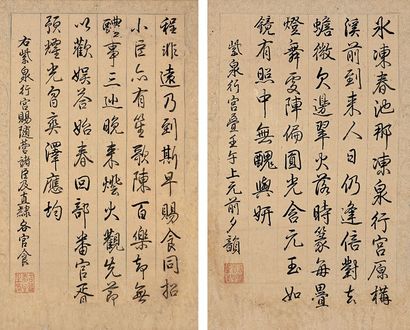 冰凍春池那凍泉行宮原構
溪前到来人日仍逢倍對去
蟾微欠邊翠火落時篆每疊
燈舞變陣偏圓光含元玉如
鏡有照中無醜與妍
紫泉行宮疊壬午上元前夕韻
程非遠乃到斯早賜食同招
小臣亦有笙歌陳百樂却無
醴事三巡晚来燈火觀先節
以歡娱答始春回部番官胥
預燿光奕澤應均
右紫泉行宮賜隨營諸臣及直隸各官食